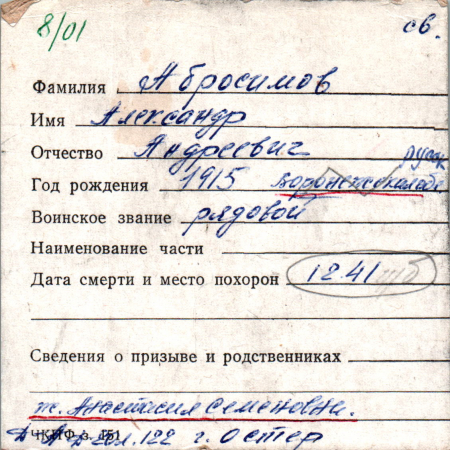 8/01 св.
Фамилия Абросимов
Имя Александр
Отчество Андреевич русск
Год рождения 1915 Воронежская обл
Воинское звание рядовой
Наименование части
Дата смерти и место похорон 12.41
Сведения о призыве и родственниках
ж. Анастасия Семеновна.
г. Остер